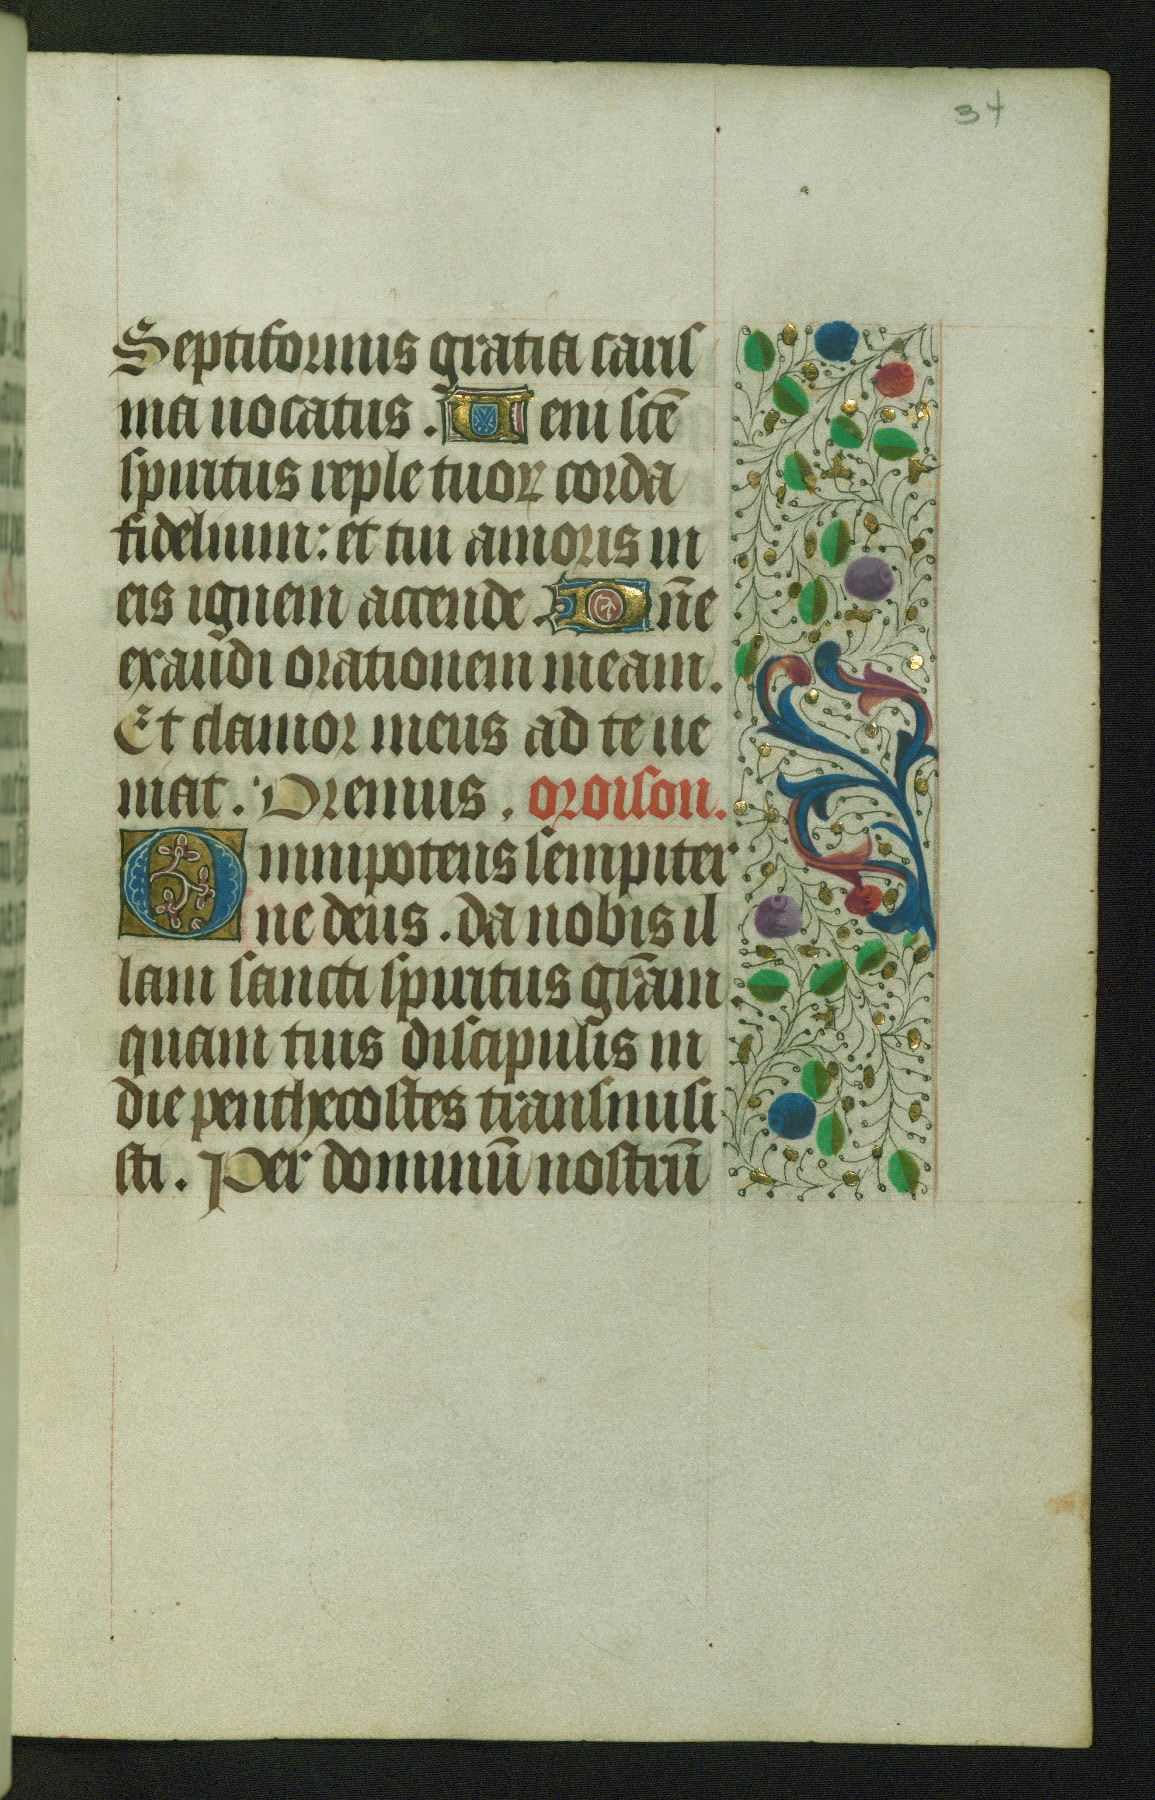 34
Septiformis gratia caris
ma uocatus. Veni sc̄e
spiritus reple tuoꝝ corda
fidelium: et tui amoris in
eis ignem accende. Dn̄e
exaudi orationem meam.
Et clamor meus ad te ue
niat. Oremus. oroison.
Omnipotens sempiter
ne deus. da nobis il
lam sancti spiritus gr̄am.
quam tuis discipulis in
die penthecostes transmisi
sti. Per dominū nostrū